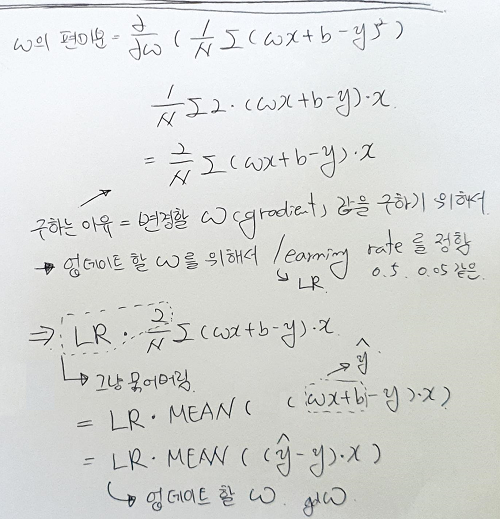 w의 편미분 = ∂/∂w ( 1/N Σ (wx+b-y)² )
1/N Σ 2 · (wx+b-y) · x
= 2/N Σ (wx+b-y) · x
구하는 이유 = 변경할 w(gradient) 값을 구하기 위해서
→ 업데이트 할 w를 위해서 learning rate를 정함
LR 0.5, 0.05 같은
⇒ LR · 2/N Σ (wx+b-y) · x
ŷ
그냥 묶어버림
= LR · MEAN ( (wx+b-y) · x )
= LR · MEAN ( (ŷ-y) · x )
업데이트 할 w.